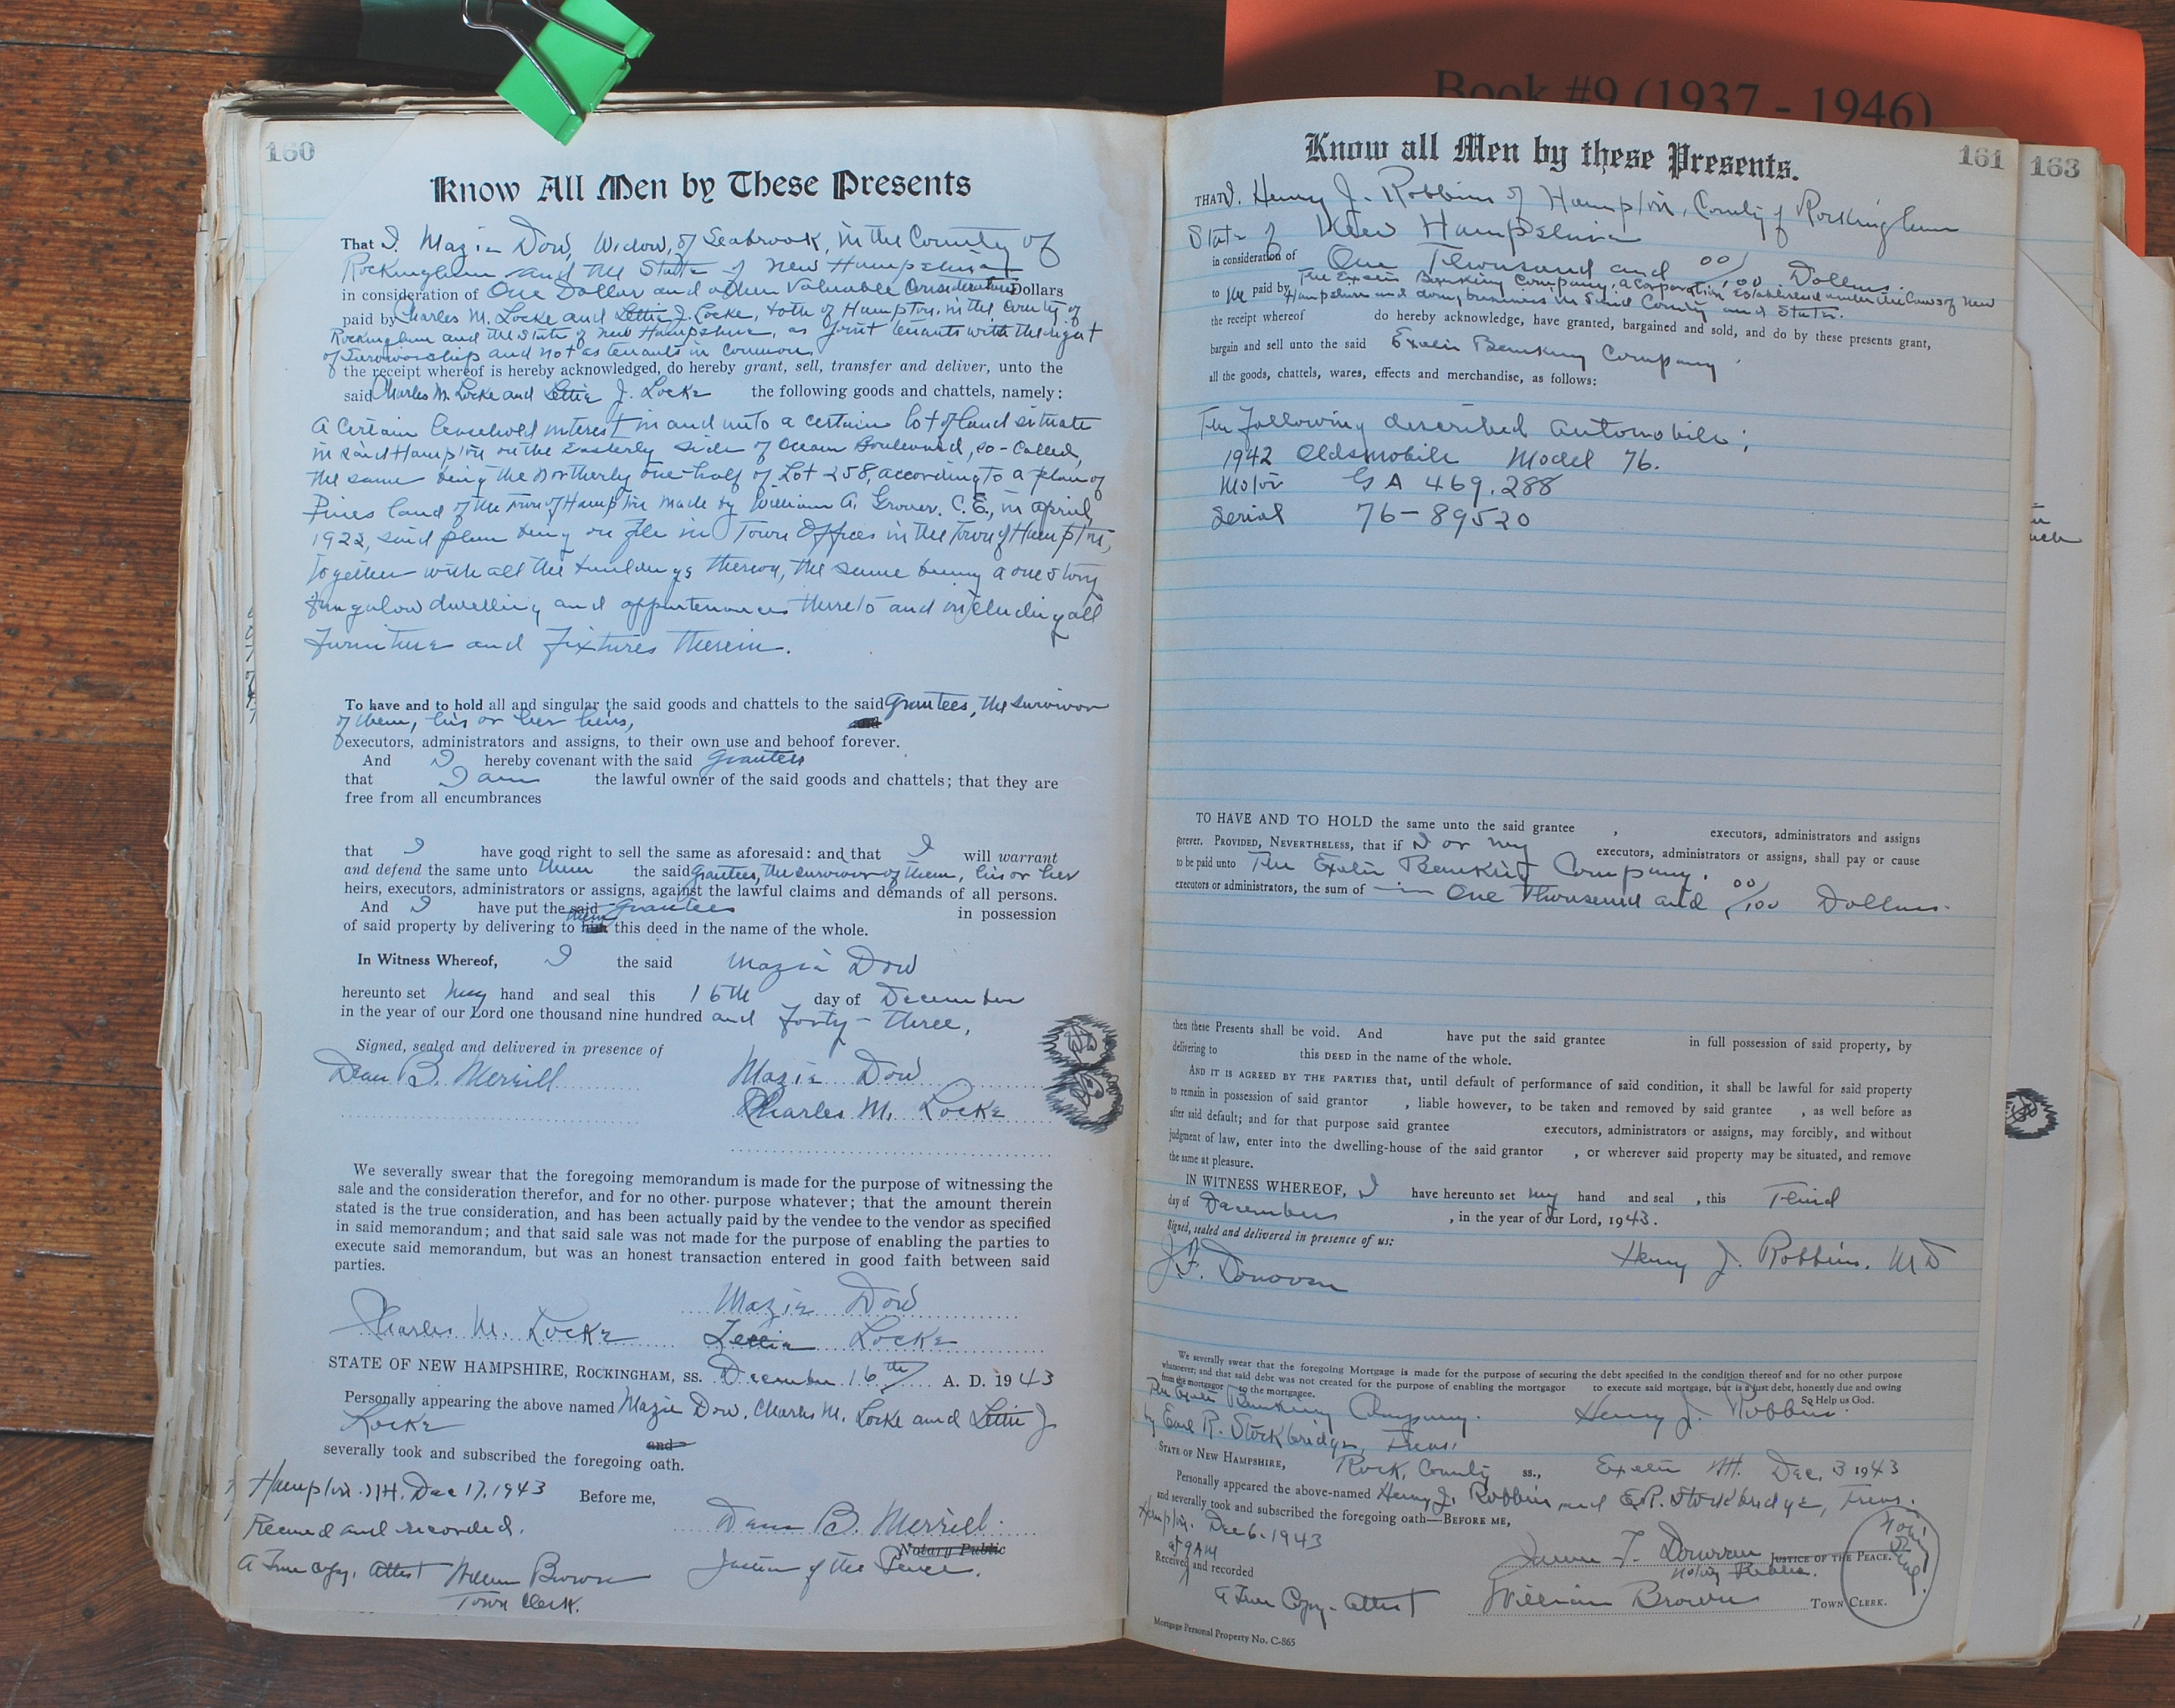 Book #9 (1937 - 1946)
160
Know All Men by These Presents
That I, Mazie Dow, Widow, of Seabrook, in the County of
Rockingham and the State of New Hampshire
in consideration of One Dollar and other valuable considerations Dollars
paid by Charles M. Locke and Lettie J. Locke, both of Hampton, in the County of
Rockingham and the State of New Hampshire, as joint tenants with the right
of survivorship and not as tenants in common,
the receipt whereof is hereby acknowledged, do hereby grant, sell, transfer and deliver, unto the
said Charles M. Locke and Lettie J. Locke the following goods and chattels, namely:
A certain leasehold interest in and unto a certain lot of land situate
in said Hampton on the Easterly side of Ocean Boulevard, so-called,
the same being the Northerly one-half of Lot 258, according to a plan of
Pines land of the Town of Hampton made by William A. Grover, C.E., in April,
1922, said plan being on file in Town Offices in the Town of Hampton,
Together with all the buildings thereon, the same being a one story
bungalow dwelling and appurtenances thereto and including all
furniture and fixtures therein.
To have and to hold all and singular the said goods and chattels to the said Grantees, the survivor
of them, his or her heirs, and
executors, administrators and assigns, to their own use and behoof forever.
And I hereby covenant with the said Grantees
that I am the lawful owner of the said goods and chattels; that they are
free from all encumbrances
that I have good right to sell the same as aforesaid: and that I will warrant
and defend the same unto them the said Grantees, the survivor of them, his or her
heirs, executors, administrators or assigns, against the lawful claims and demands of all persons.
And I have put the said Grantees in possession
of said property by delivering to them this deed in the name of the whole.
In Witness Whereof, I the said Mazie Dow
hereunto set my hand and seal this 16th day of December
in the year of our Lord one thousand nine hundred and forty-three,
Signed, sealed and delivered in presence of
Dean B. Merrill Mazie Dow
Charles M. Locke
We severally swear that the foregoing memorandum is made for the purpose of witnessing the
sale and the consideration therefor, and for no other purpose whatever; that the amount therein
stated is the true consideration, and has been actually paid by the vendee to the vendor as specified
in said memorandum; and that said sale was not made for the purpose of enabling the parties to
execute said memorandum, but was an honest transaction entered in good faith between said
parties.
Mazie Dow
Charles M. Locke Lettie Locke
STATE OF NEW HAMPSHIRE, ROCKINGHAM, SS. December 16th A. D. 1943
Personally appearing the above named Mazie Dow, Charles M. Locke and Lettie J
Locke
and
severally took and subscribed the foregoing oath.
Hampton. N.H. Dec 17, 1943 Before me,
Received and recorded. Dean B. Merrill
Notary Public
A True copy, Attest William Brown Justice of the Peace.
Town Clerk.
161
163
Know all Men by these Presents.
THAT I, Henry J. Robbins of Hampton, County of Rockingham
State of New Hampshire
in consideration of One Thousand and 00/100 Dollars.
to me paid by The Exeter Banking Company, a corporation established under the laws of New
Hampshire and doing business in said County and State.
the receipt whereof do hereby acknowledge, have granted, bargained and sold, and do by these presents grant,
bargain and sell unto the said Exeter Banking Company
all the goods, chattels, wares, effects and merchandise, as follows:
The following described automobile;
1942 Oldsmobile Model 76.
Motor GA 469.288
Serial 76-89520
TO HAVE AND TO HOLD the same unto the said grantee , executors, administrators and assigns
forever. PROVIDED, NEVERTHELESS, that if I or my executors, administrators or assigns, shall pay or cause
to be paid unto The Exeter Banking Company.
executors or administrators, the sum of One Thousand and 00/100 Dollars.
then these Presents shall be void. And have put the said grantee in full possession of said property, by
delivering to this DEED in the name of the whole.
AND IT IS AGREED BY THE PARTIES that, until default of performance of said condition, it shall be lawful for said property
to remain in possession of said grantor , liable however, to be taken and removed by said grantee , as well before as
after said default; and for that purpose said grantee executors, administrators or assigns, may forcibly, and without
judgment of law, enter into the dwelling-house of the said grantor , or wherever said property may be situated, and remove
the same at pleasure.
IN WITNESS WHEREOF, I have hereunto set my hand and seal , this Third
day of December , in the year of our Lord, 1943.
Signed, sealed and delivered in presence of us:
J. F. Donovan Henry J. Robbins. MD
We severally swear that the foregoing Mortgage is made for the purpose of securing the debt specified in the condition thereof and for no other purpose
whatsoever; and that said debt was not created for the purpose of enabling the mortgagor to execute said mortgage, but is a just debt, honestly due and owing
from the mortgagor to the mortgagee. So Help us God.
The Exeter Banking Company. Henry J. Robbins.
by Earl R. Stockbridge, Treas.
STATE OF NEW HAMPSHIRE, Rock. County ss., Exeter NH. Dec. 3 1943
Personally appeared the above-named Henry J. Robbins and E.R. Stockbridge, Treas.
and severally took and subscribed the foregoing oath—BEFORE ME,
Hampton. Dec 6. 1943
at 9 AM James F. Donovan JUSTICE OF THE PEACE.
Received and recorded Notary Public.
A True Copy-Attest William Brown TOWN CLERK.
Mortgage Personal Property No. C-865